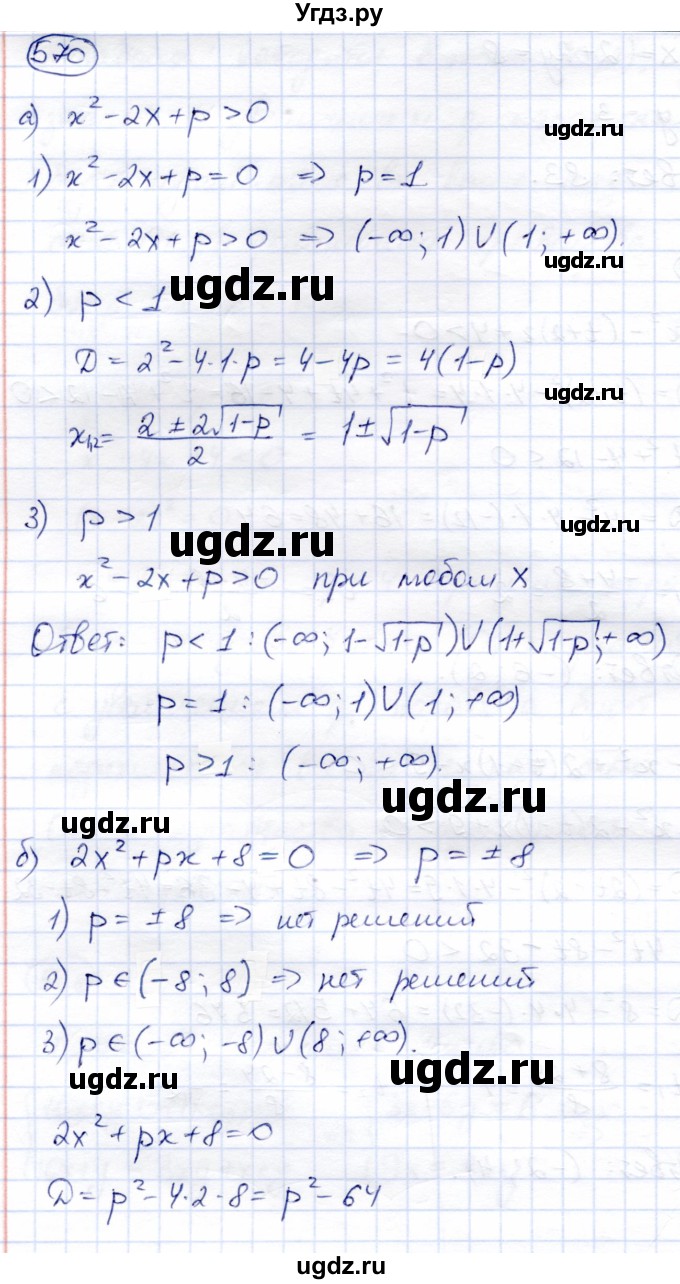 Угдз.ру
570
а) x² - 2x + p > 0
ugdz.ru
1) x² - 2x + p = 0 => p = 1
x² - 2x + p > 0 => (-∞; 1) ∪ (1; +∞).
ugdz.ru
ugdz.ru
2) p < 1
D = 2² - 4·1·p = 4 - 4p = 4(1-p)
ugdz.ru
x₁,₂ = (2 ± 2√(1-p))/2 = 1 ± √(1-p)
3) p > 1
ugdz.ru
ugdz.ru
x² - 2x + p > 0 при любом x
Ответ: p < 1 : (-∞; 1-√(1-p)) ∪ (1+√(1-p); +∞)
p = 1 : (-∞; 1) ∪ (1; +∞)
p > 1 : (-∞; +∞).
ugdz.ru
ugdz.ru
б) 2x² + px + 8 = 0 => p = ± 8
1) p = ± 8 => нет решений
2) p ∈ (-8; 8) => нет решений
3) p ∈ (-∞; -8) ∪ (8; +∞).
ugdz.ru
ugdz.ru
2x² + px + 8 = 0
D = p² - 4·2·8 = p² - 64
ugdz.ru